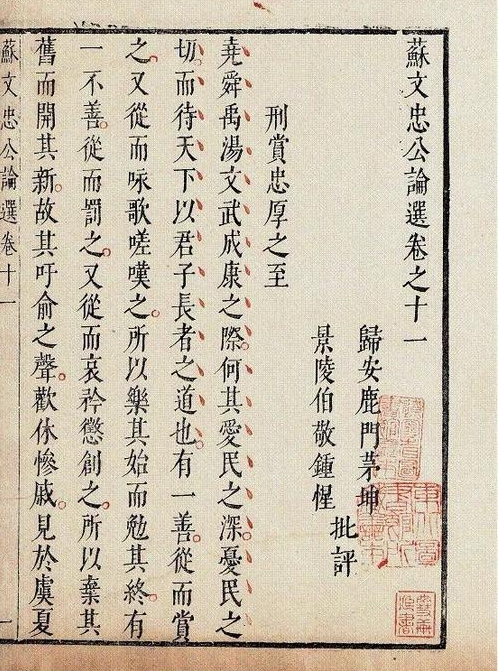 蘇文忠公論選卷之十一
歸安鹿門茅坤
景陵伯敬鍾惺
批評
刑賞忠厚之至
堯舜禹湯文武成康之際何其愛民之深憂民之
切而待天下以君子長者之道也有一善從而賞
之又從而咏歌嗟嘆之所以樂其始而勉其終有
一不善從而罰之又從而哀矜懲創之所以棄其
舊而開其新故其吁俞之聲歡休慘戚見於虞夏
蘇文忠公論選卷十一
一